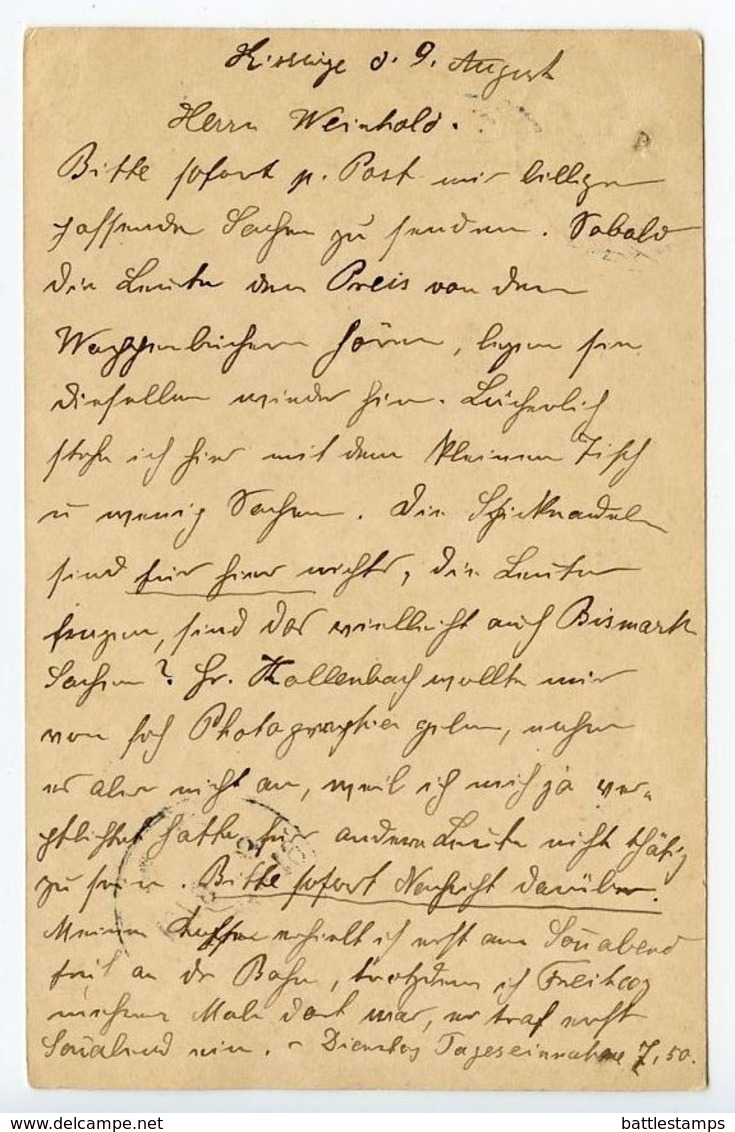 Kissinge d. 9. August
Herrn Weinhold.
Bitte sofort p. Post mir billigen
passende Sachen zu senden. Sobald
die Leute den Preis von den
Wappenbüchern hören, legen sie
dieselben wieder hin. Lächerlich
stehe ich hier mit dem kleinen Tisch
u wenig Sachen. Die Schicknadeln
sind für hier nichts, die Leute
fragen, sind das vielleicht auch Bismark
Sachen? Hr. Kallenbach wollte mir
von sich Photographien geben, nahm
es aber nicht an, weil ich mich ja ver-
pflichtet hatte für andere Leute nicht thätig
zu sein. Bitte sofort Nachricht darüber.
Meinen erhielt ich erst am Sonabend
früh an der Bahn, trotzdem ich Freitag
mehrere Male dort war, er traf erst
Sonabend ein. – Dienstag Tageseinnahme 7,50.
delcampe.net
battlestamps